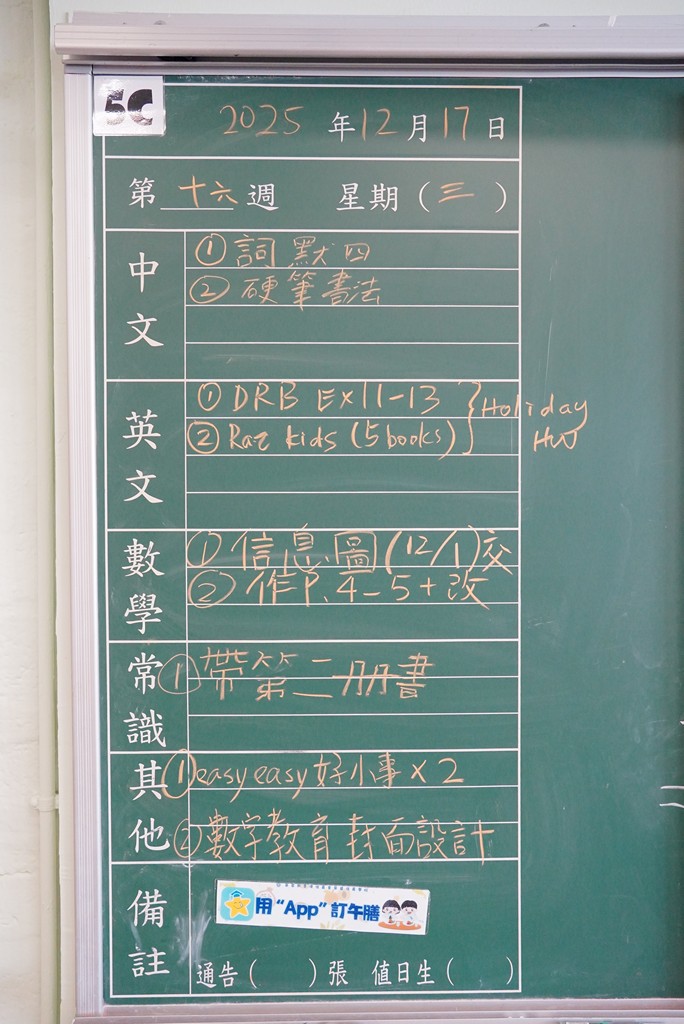 5C
2025 年 12 月 17 日
第 十六 週 星期 ( 三 )
中文
① 詞默四
② 硬筆書法
英文
① DRB Ex11-13 } Holiday
② Raz kids (5 books) HW
數學
① 信息圖 (12/1) 交
② 作P.4-5+改
常識
① 帶第二冊書
其他
① easyeasy好小事×2
② 數字教育封面設計
備註
用“App”訂午膳
通告 ( ) 張 值日生 ( )